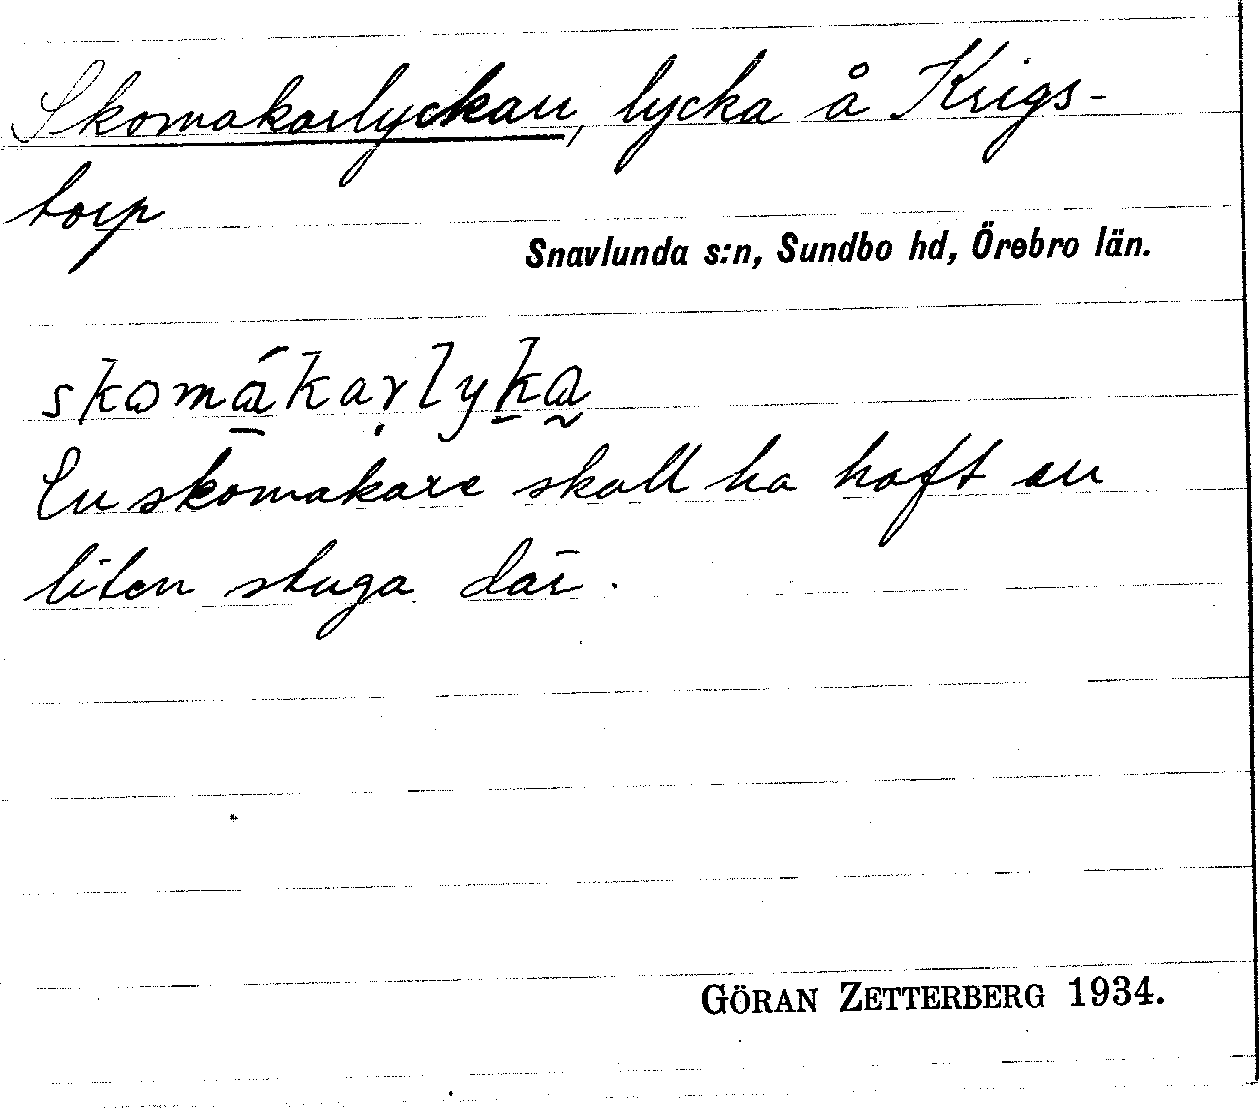 Skomakarlyckan, lycka å Krigs-
torp
Snavlunda s:n, Sundbo hd, Örebro län.
skomákarlyka
En skomakare skall ha haft en
liten stuga där.
GÖRAN ZETTERBERG 1934.